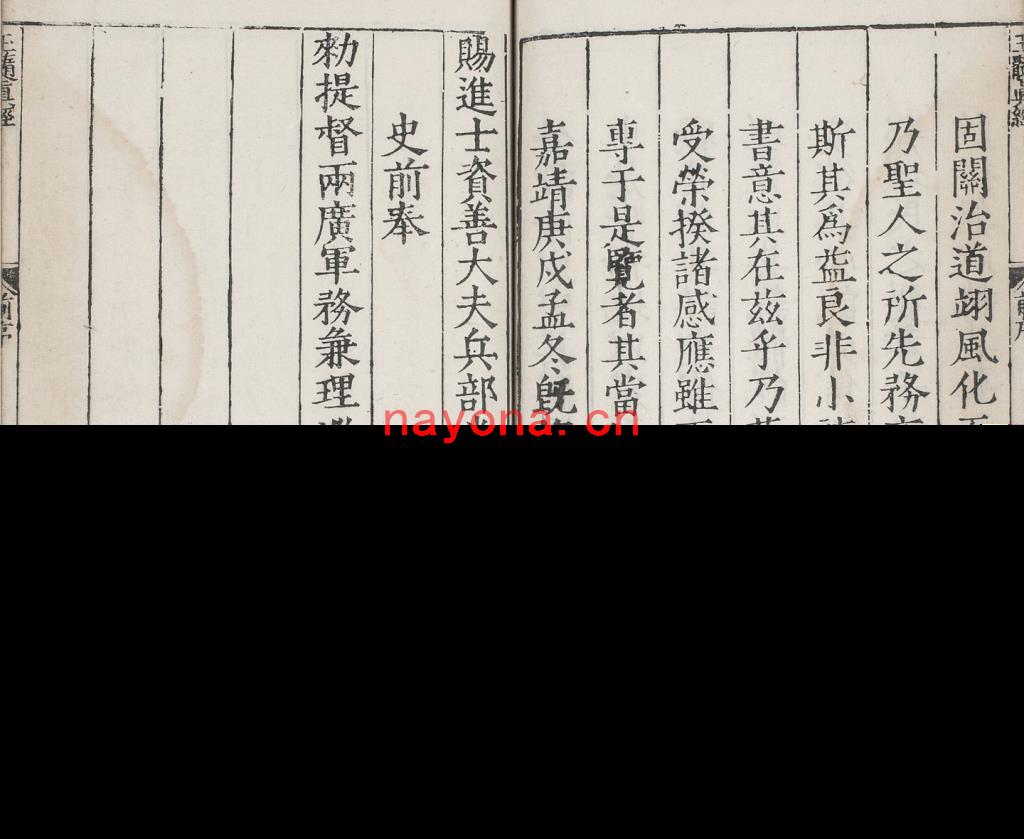 玉髓真經
固關治道翊風化
乃聖人之所先務
斯其爲益良非小
書意其在茲乎乃
受榮揆諸感應雖
專于是覽者其當
嘉靖庚戌孟冬既
賜進士資善大夫兵部
史前奉
勑提督兩廣軍務兼理
玉髓真經
前序
nayona. cn